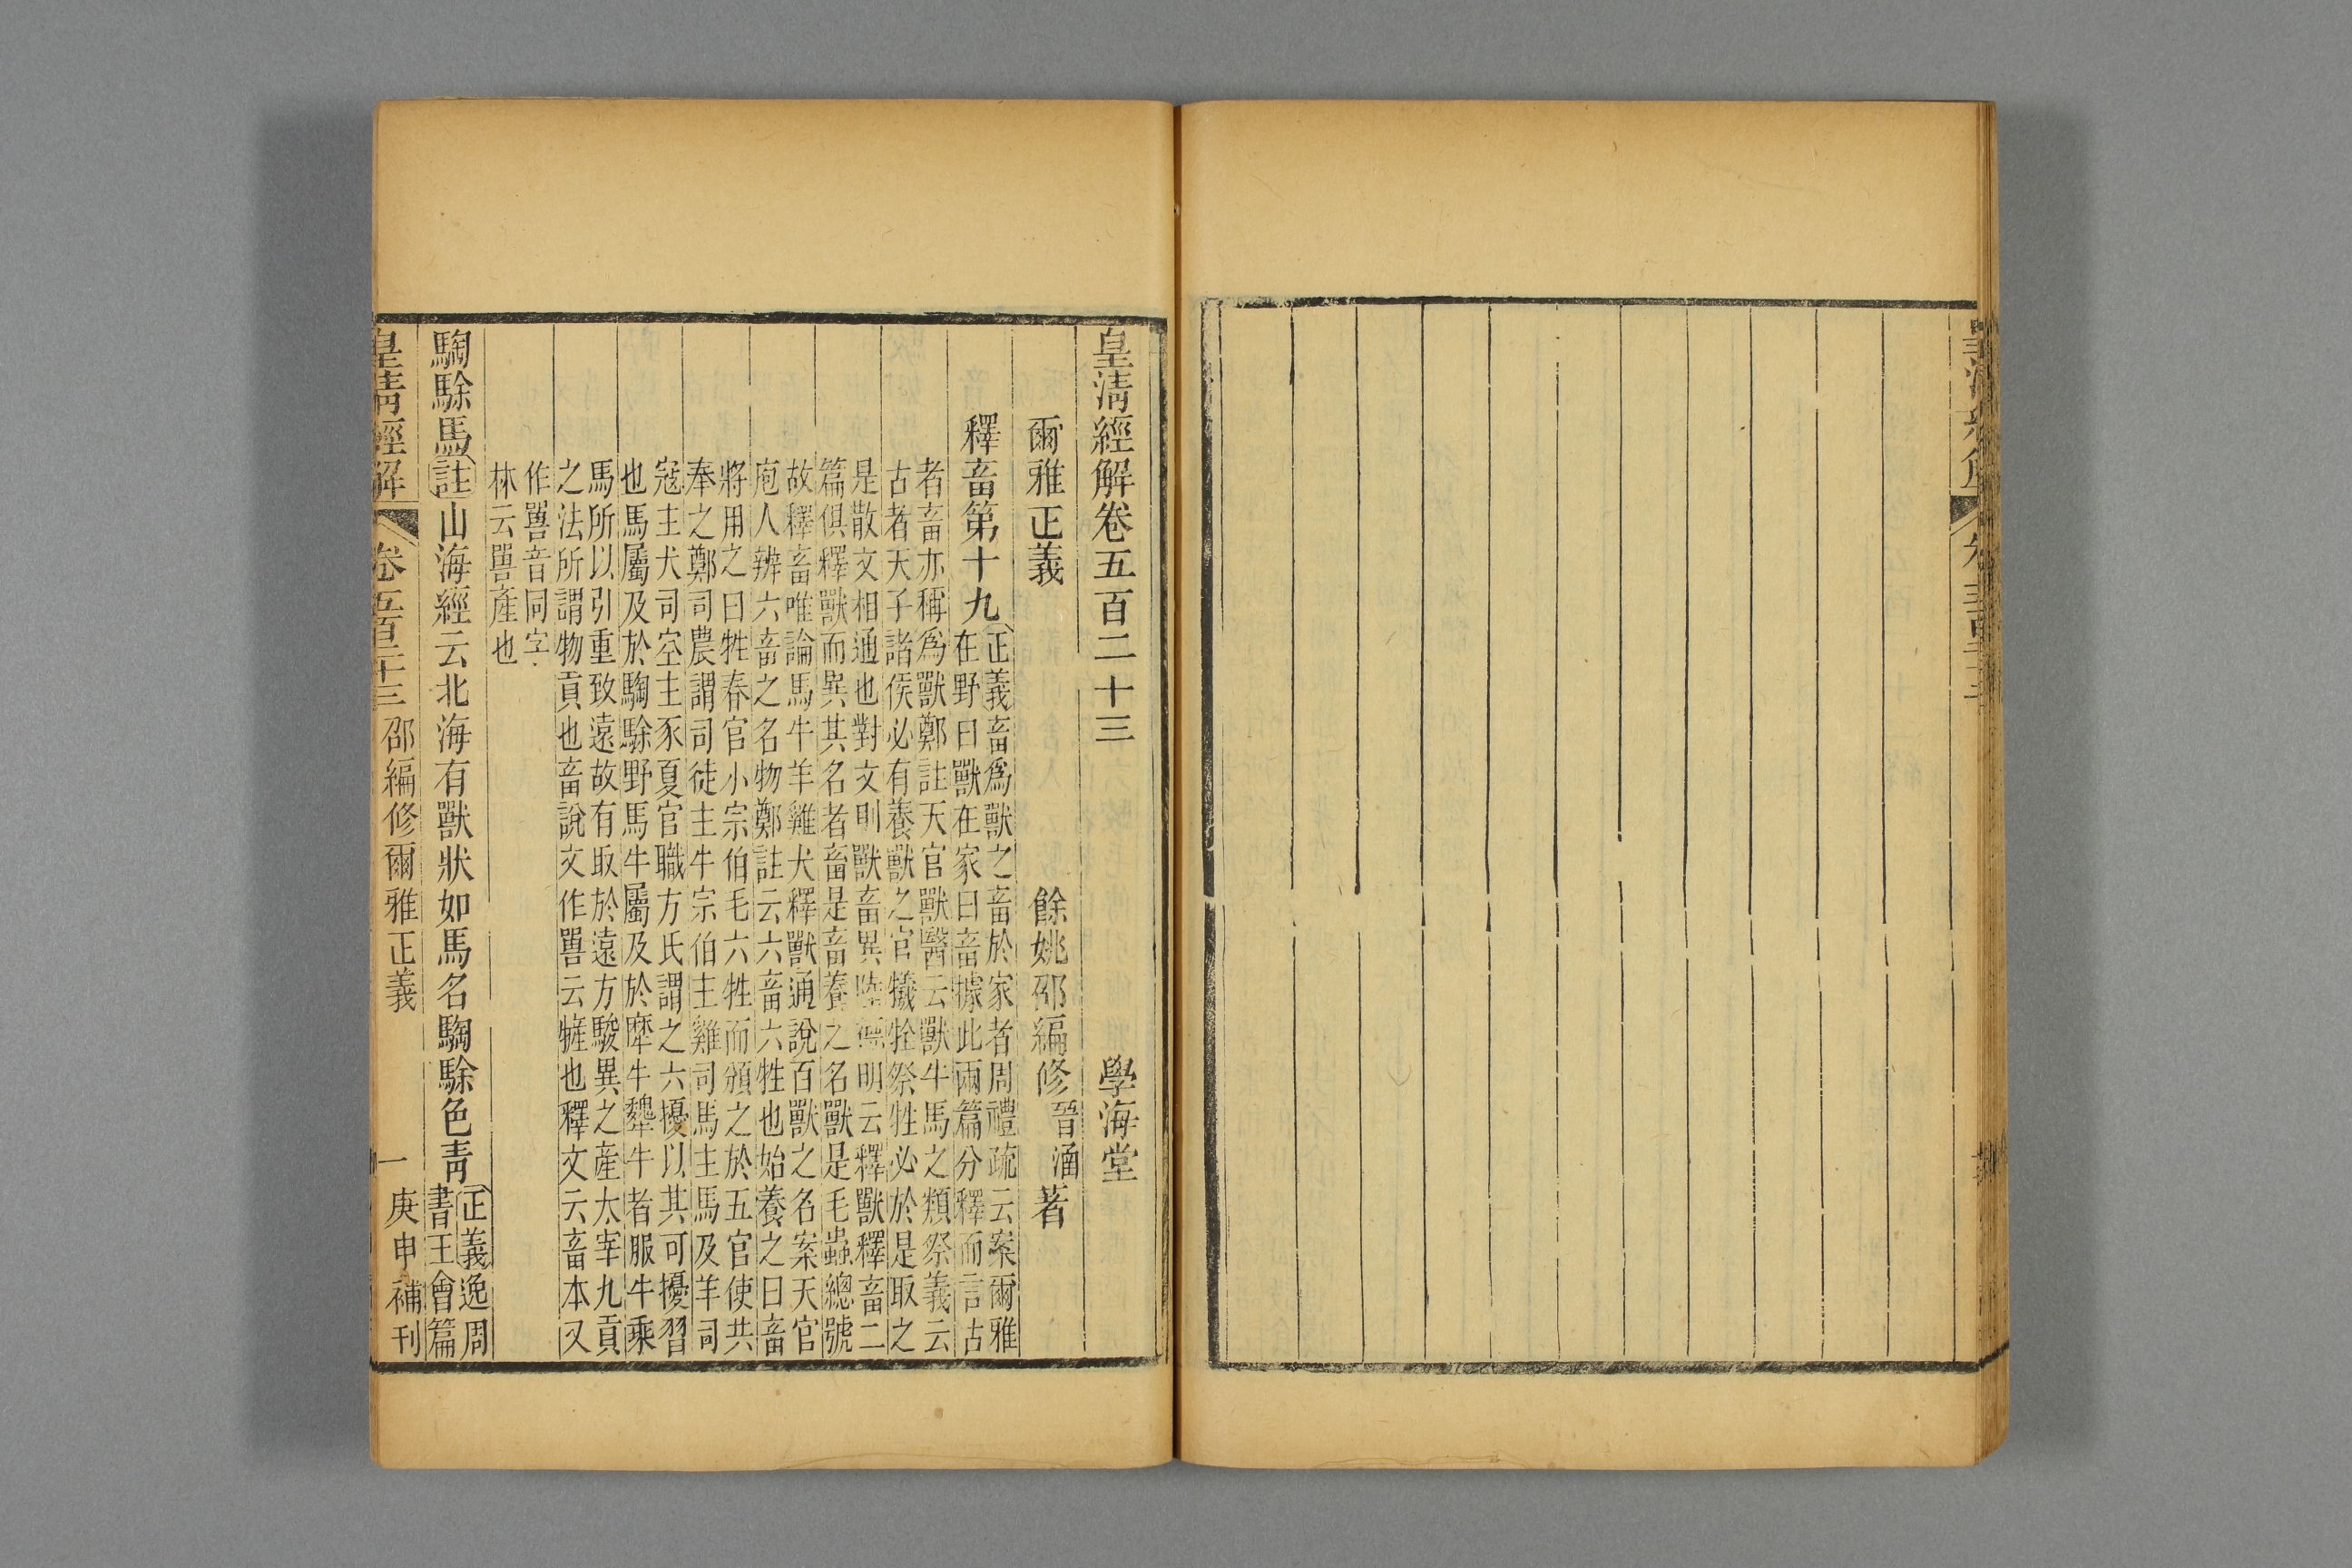 皇清經解卷五百二十三
學海堂
爾雅正義
餘姚邵編修晉涵著
釋畜第十九
正義畜爲獸之畜於家者周禮疏云案爾雅
在野曰獸在家曰畜據此兩篇分釋而言古
者畜亦稱爲獸鄭註天官獸醫云獸牛馬之類祭義云
古者天子諸侯必有養獸之官犧牷祭牲必於是取之
是散文相通也對文則獸畜異陸德明云釋獸釋畜二
篇俱釋獸而異其名者畜是畜養之名獸是毛蟲總號
故釋畜唯論馬牛羊雞犬釋獸通說百獸之名案天官
庖人辨六畜之名物鄭註云六畜六牲也始養之曰畜
將用之曰牲春官小宗伯毛六牲而頒之於五官使共
奉之鄭司農謂司徒主牛宗伯主雞司馬主馬及羊司
寇主犬司空主豕夏官職方氏謂之六擾以其可擾習
也馬屬及於騊駼野馬牛屬及於犘牛犩牛者服牛乘
馬所以引重致遠故有取於遠方駿異之產太宰九貢
之法所謂物貢也畜說文作嘼云㹌也釋文云畜本又
作嘼音同字
林云嘼產也
騊駼馬註山海經云北海有獸狀如馬名騊駼色青
正義逸周
書王會篇
皇清經解 卷五百二十三 邵編修爾雅正義 一 庚申補刊